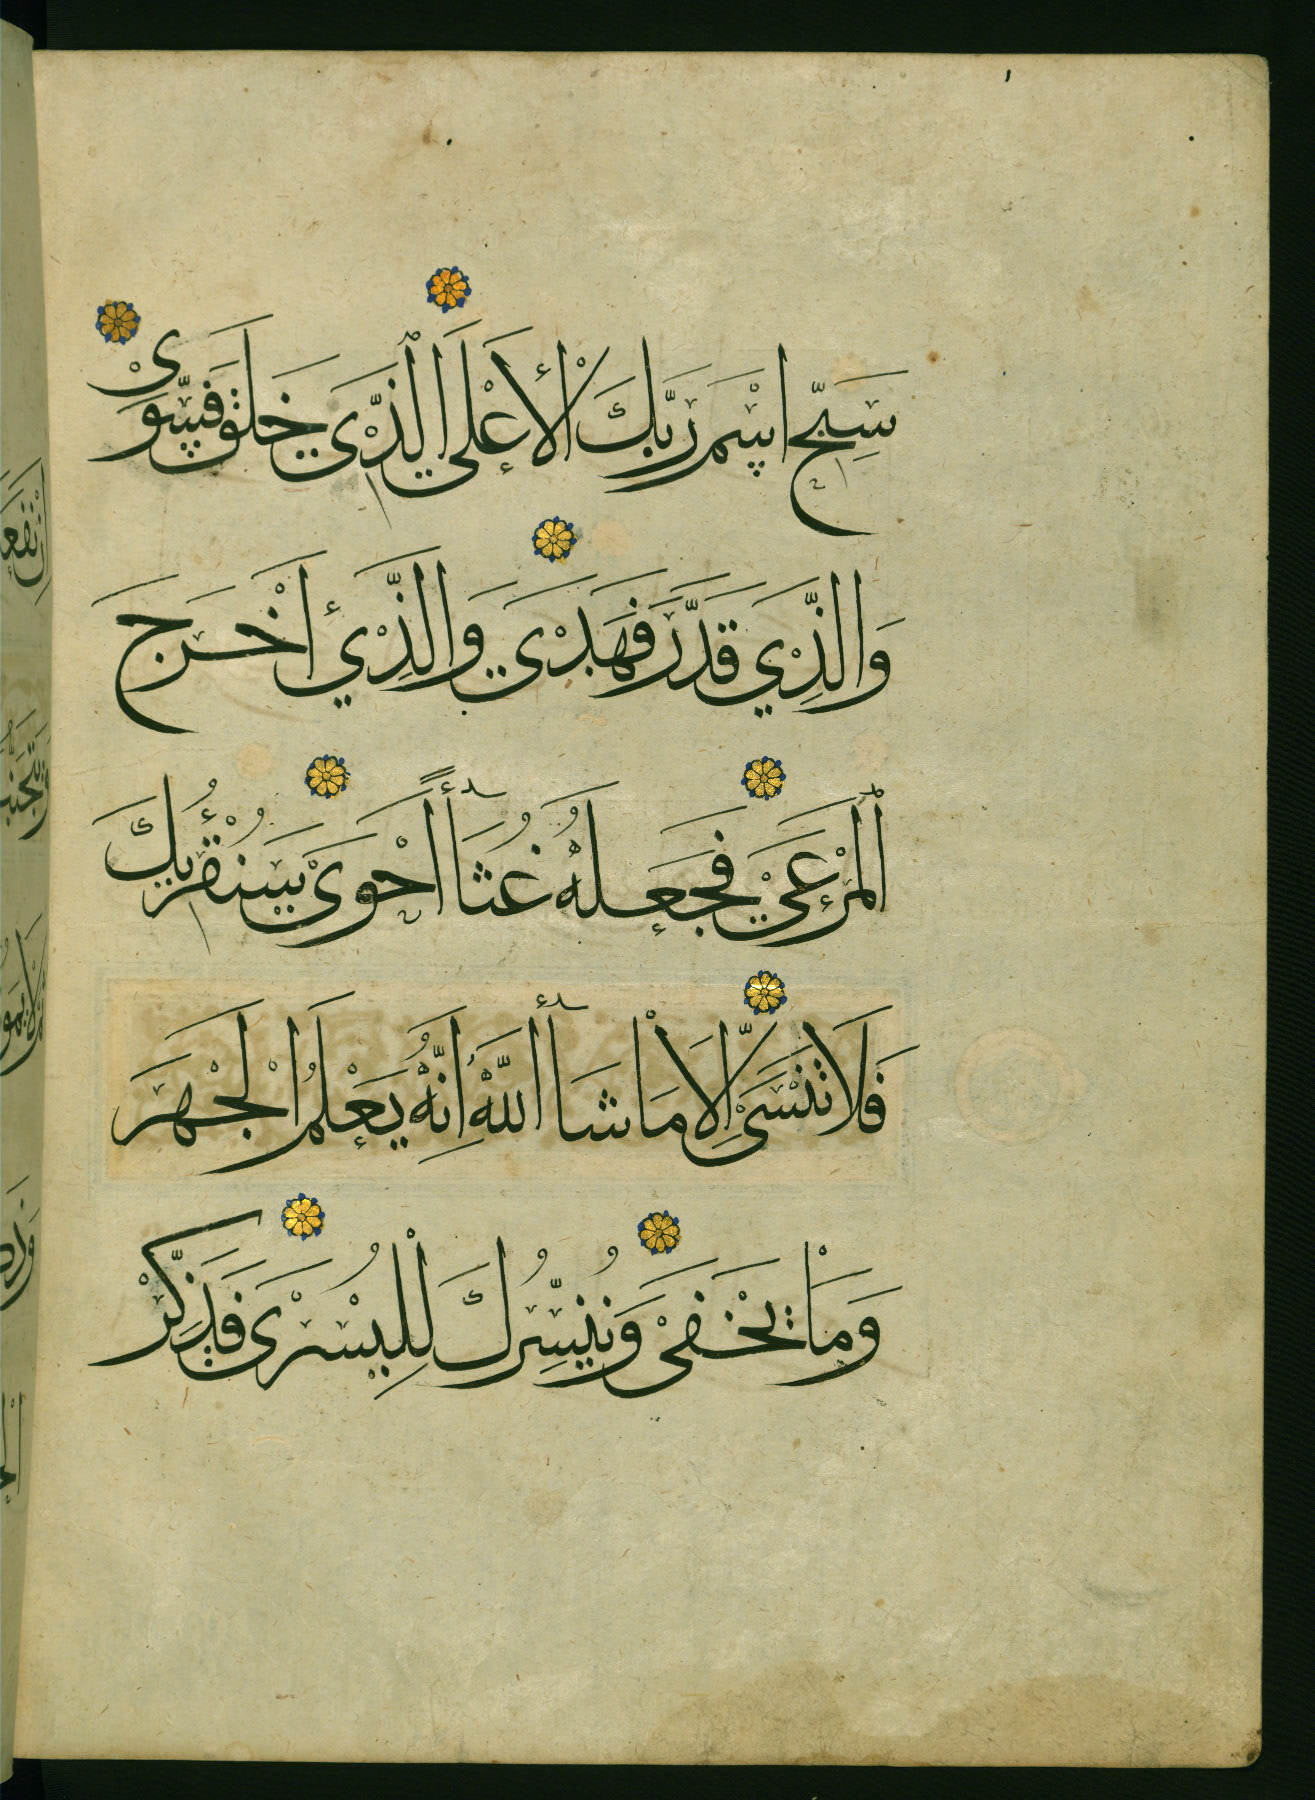 سَبِّحِ اسْمَ رَبِّكَ الْأَعْلَى الَّذِي خَلَقَ فَسَوَّىٰ
وَالَّذِي قَدَّرَ فَهَدَىٰ وَالَّذِي أَخْرَجَ
الْمَرْعَىٰ فَجَعَلَهُ غُثَاءً أَحْوَىٰ سَنُقْرِئُكَ
فَلَا تَنْسَىٰ إِلَّا مَا شَاءَ اللَّهُ إِنَّهُ يَعْلَمُ الْجَهْرَ
وَمَا يَخْفَىٰ وَنُيَسِّرُكَ لِلْيُسْرَىٰ فَذَكِّرْ